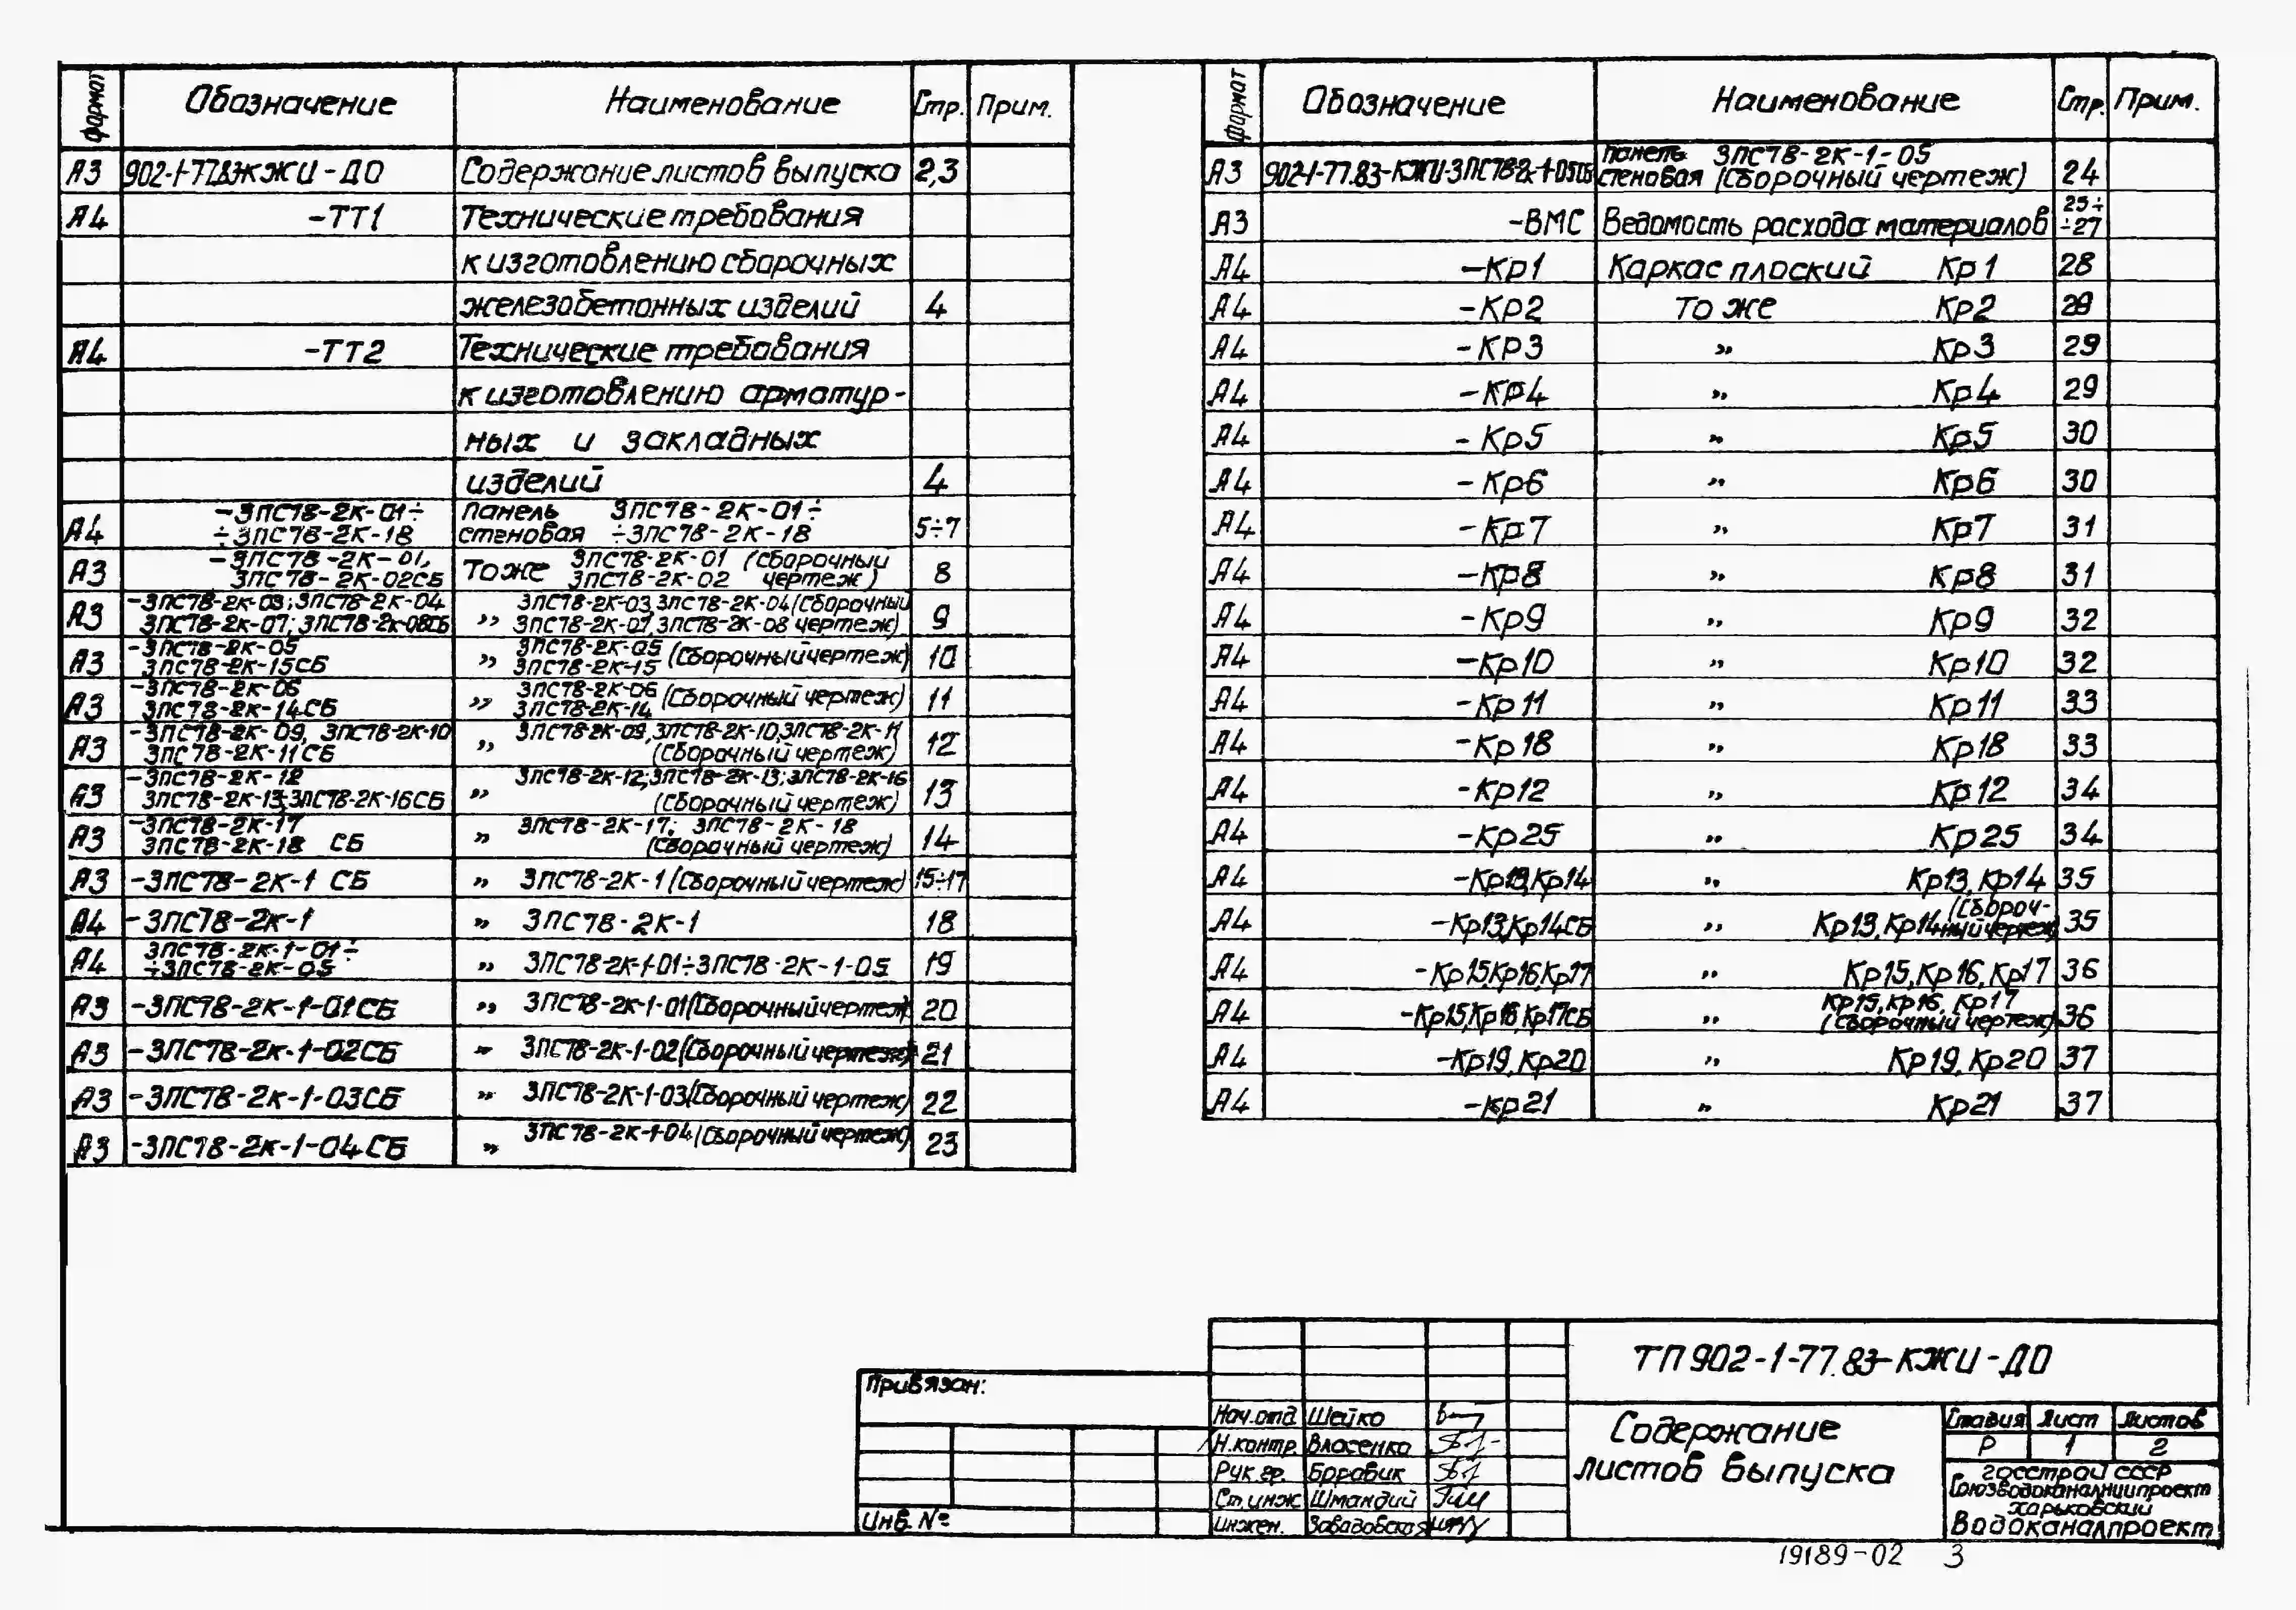 формат Обозначение Наименование Стр. Прим.
А3 902-1-77.83-КЖИ-ДО Содержание листов выпуска 2,3
А4 -ТТ1 Технические требования
к изготовлению сборочных
железобетонных изделий 4
А4 -ТТ2 Технические требования
к изготовлению арматур-
ных и закладных
изделий 4
-3ПС78-2К-01÷ Панель 3ПС78-2К-01÷
А4 ÷3ПС78-2К-18 стеновая ÷3ПС78-2К-18 5÷7
-3ПС78-2К-01, 3ПС78-2К-01 (Сборочный
А3 3ПС78-2К-02СБ То же 3ПС78-2К-02 чертеж) 8
-3ПС78-2К-03; 3ПС78-2К-04 3ПС78-2К-03, 3ПС78-2К-04 (Сборочный
А3 3ПС78-2К-07; 3ПС78-2К-08СБ „ 3ПС78-2К-07, 3ПС78-2К-08 чертеж) 9
-3ПС78-2К-05 3ПС78-2К-05
А3 3ПС78-2К-15СБ „ 3ПС78-2К-15 (Сборочный чертеж) 10
-3ПС78-2К-06 3ПС78-2К-06
А3 3ПС78-2К-14СБ „ 3ПС78-2К-14 (Сборочный чертеж) 11
-3ПС78-2К-09, 3ПС78-2К-10 3ПС78-2К-09, 3ПС78-2К-10, 3ПС78-2К-11
А3 3ПС78-2К-11СБ „ (Сборочный чертеж) 12
-3ПС78-2К-12 3ПС78-2К-12; 3ПС78-2К-13; 3ПС78-2К-16
А3 3ПС78-2К-13; 3ПС78-2К-16СБ „ (Сборочный чертеж) 13
-3ПС78-2К-17 3ПС78-2К-17; 3ПС78-2К-18
А3 3ПС78-2К-18 СБ „ (Сборочный чертеж) 14
А3 -3ПС78-2К-1 СБ „ 3ПС78-2К-1 (Сборочный чертеж) 15÷17
А4 -3ПС78-2К-1 „ 3ПС78-2К-1 18
3ПС78-2К-1-01÷
А4 ÷3ПС78-2К-05 „ 3ПС78-2К-1-01÷3ПС78-2К-1-05 19
А3 -3ПС78-2К-1-01СБ „ 3ПС78-2К-1-01 (Сборочный чертеж) 20
А3 -3ПС78-2К-1-02СБ „ 3ПС78-2К-1-02 (Сборочный чертеж) 21
А3 -3ПС78-2К-1-03СБ „ 3ПС78-2К-1-03 (Сборочный чертеж) 22
А3 -3ПС78-2К-1-04СБ „ 3ПС78-2К-1-04 (Сборочный чертеж) 23
формат Обозначение Наименование Стр. Прим.
панель 3ПС78-2К-1-05
А3 902-1-77.83-КЖИ-3ПС78-2К-1-05СБ стеновая (Сборочный чертеж) 24
А3 -ВМС Ведомость расхода материалов 25÷
÷27
А4 -Кр1 Каркас плоский Кр1 28
А4 -Кр2 То же Кр2 28
А4 -КР3 „ Кр3 29
А4 -КР4 „ Кр4 29
А4 -Кр5 „ Кр5 30
А4 -Кр6 „ Кр6 30
А4 -Кр7 „ Кр7 31
А4 -Кр8 „ Кр8 31
А4 -Кр9 „ Кр9 32
А4 -Кр10 „ Кр10 32
А4 -Кр11 „ Кр11 33
А4 -Кр18 „ Кр18 33
А4 -Кр12 „ Кр12 34
А4 -Кр25 „ Кр25 34
А4 -Кр13,Кр14 „ Кр13, Кр14 35
А4 -Кр13,Кр14СБ „ Кр13, Кр14 (Сбороч-
ный чертеж) 35
А4 -Кр15,Кр16,Кр17 „ Кр15, Кр16, Кр17 36
Кр15, Кр16, Кр17
А4 -Кр15,Кр16 Кр17СБ „ (Сборочный чертеж) 36
А4 -Кр19, Кр20 „ Кр19, Кр20 37
А4 -Кр21 „ Кр21 37
Привязан:
Инв. №
Нач.отд Шейко
Н.контр. Власенко
Рук.гр. Боровик
Ст.инж Шмандий
Инжен. Завадовская
ТП 902-1-77.83-КЖИ-ДО
Содержание
листов выпуска
Стадия Лист Листов
Р 1 2
Госстрой СССР
Союзводоканалниипроект
Харьковский
Водоканалпроект
19189-02 3